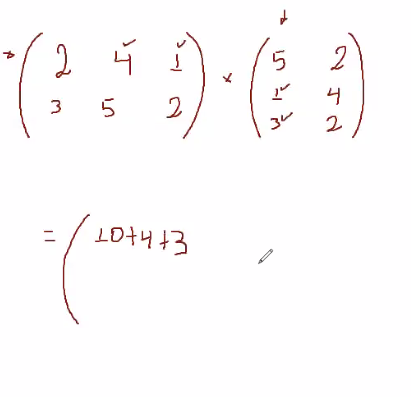 ( 2 4 1 ) × ( 5 2
3 5 2 1 4
3 2 )
= ( 10+4+3